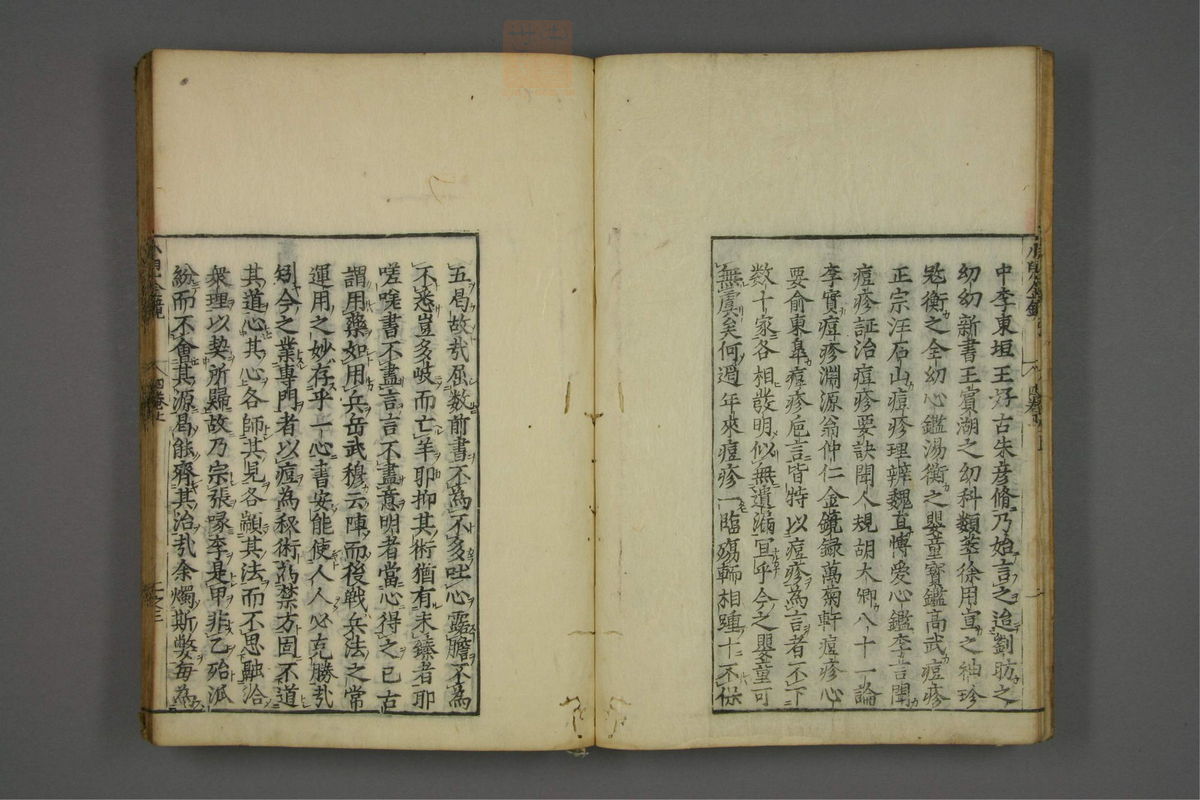 中李東垣王好古朱彦脩乃始言之迨劉昉之
幼幼新書王賓湖之幼科類萃徐用宣之袖珍
匙衡之全幼心鑑湯衡之嬰童寶鑑高武痘疹
正宗汪石山痘疹理辨魏直博愛心鑑李言聞
痘疹証治痘疹要訣聞人規胡大卿八十一論
李實痘疹淵源翁仲仁金鏡録萬菊軒痘疹心
要俞東皐痘疹巵言皆特以痘疹為言者不下
数十家各相發明似無遺漏宜乎今之嬰童可
無虞矣何過年來痘疹一臨殤輀相踵十不保
五曷故㢤屈数前書不為不多吐心露膽不為
不悉豈多岐而亡羊耶抑其術猶有未臻者耶
嗟嗟書不盡言言不盡意明者當心得之已古
謂用藥如用兵岳武穆云陣而後戦兵法之常
運用之妙存乎一心書安能使人人必克勝㢤
矧今之業專門者以痘為秘術為禁方固不道
其道心其心各師其見各顓其法而不思融洽
衆理以契所歸故乃宗張喙李是甲非乙殆派
紛而不會其源曷能齊其治㢤余燭斯弊毎為